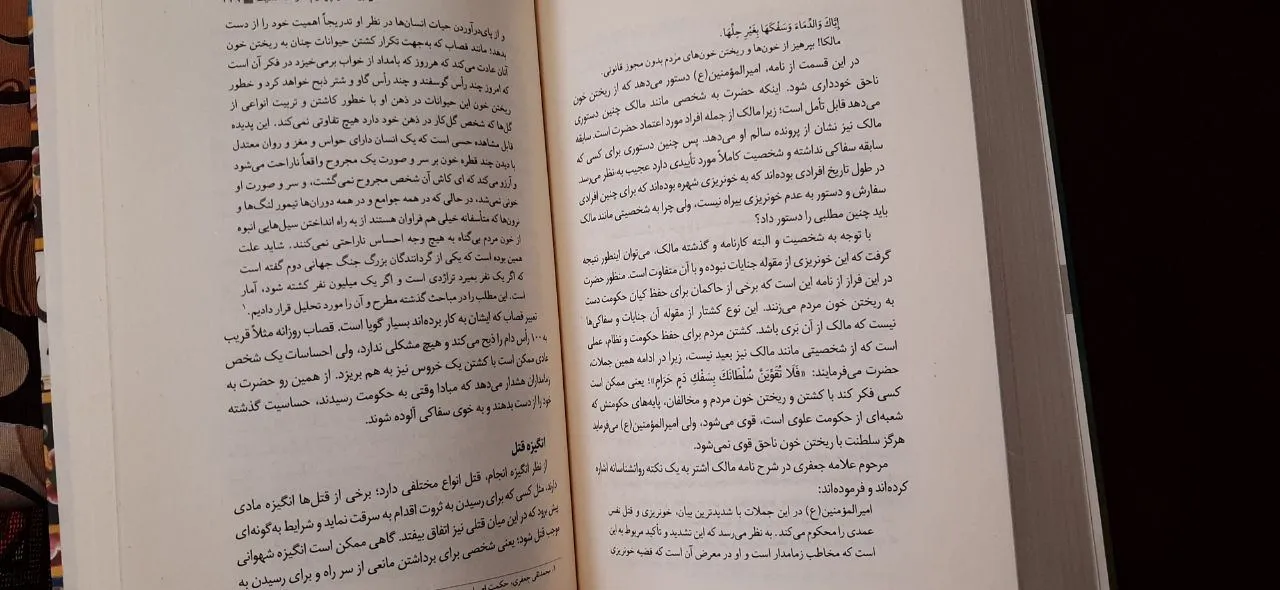 إِيَّاكَ وَالدِّمَاءَ وَسَفْكَهَا بِغَيْرِ حِلِّهَا.
مالکا! بپرهیز از خون‌ها و ریختن خون‌های مردم بدون مجوز قانونی.
در این قسمت از نامه، امیرالمؤمنین(ع) دستور می‌دهد که از ریختن خون
ناحق خودداری شود. اینکه حضرت به شخصی مانند مالک چنین دستوری
می‌دهد قابل تأمل است؛ زیرا مالک از جمله افراد مورد اعتماد حضرت است. سابقه
مالک نیز نشان از پرونده سالم او می‌دهد. پس چنین دستوری برای کسی که
سابقه سفاکی نداشته و شخصیت کاملاً مورد تأییدی دارد عجیب به نظر می‌رسد.
در طول تاریخ افرادی بوده‌اند که به خونریزی شهره بوده‌اند که برای چنین افرادی
سفارش و دستور به عدم خونریزی بیراه نیست، ولی چرا به شخصیتی مانند مالک
باید چنین مطلبی را دستور داد؟
با توجه به شخصیت و البته کارنامه و گذشته مالک، می‌توان اینطور نتیجه
گرفت که این خونریزی از مقوله جنایات نبوده و با آن متفاوت است. منظور حضرت
در این فراز از نامه این است که برخی از حاکمان برای حفظ کیان حکومت دست
به ریختن خون مردم می‌زنند. این نوع کشتار از مقوله آن جنایات و سفاکی‌ها
نیست که مالک از آن بَری باشد. کشتن مردم برای حفظ حکومت و نظام، عملی
است که از شخصیتی مانند مالک نیز بعید نیست، زیرا در ادامه همین جملات،
حضرت می‌فرمایند: «فَلَا تُقَوِّيَنَّ سُلْطَانَكَ بِسَفْكِ دَمٍ حَرَامٍ»؛ یعنی ممکن است
کسی فکر کند با کشتن و ریختن خون مردم و مخالفان، پایه‌های حکومتش که
شعبه‌ای از حکومت علوی است، قوی می‌شود، ولی امیرالمؤمنین(ع) می‌فرماید
هرگز سلطنت با ریختن خون ناحق قوی نمی‌شود.
مرحوم علامه جعفری در شرح نامه مالک اشتر به یک نکته روانشناسانه اشاره
کرده‌اند و فرموده‌اند:
امیرالمؤمنین(ع) در این جملات با شدیدترین بیان، خونریزی و قتل نفس
عمدی را محکوم می‌کند. به نظر می‌رسد که این تشدید و تأکید مربوط به این
است که مخاطب زمامدار است و او در معرض آن است که قضیه خونریزی
و از پای‌درآوردن حیات انسان‌ها در نظر او تدریجاً اهمیت خود را از دست
بدهد؛ مانند قصاب که به‌جهت تکرار کشتن حیوانات چنان به ریختن خون
آنان عادت می‌کند که هرروز که بامداد از خواب برمی‌خیزد در فکر آن است
که امروز چند رأس گوسفند و چند رأس گاو و شتر ذبح خواهد کرد و خطور
ریختن خون این حیوانات در ذهن او با خطور کاشتن و تربیت انواعی از
گل‌ها که شخص گل‌کار در ذهن خود دارد هیچ تفاوتی نمی‌کند. این پدیده
قابل مشاهده حسی است که یک انسان دارای حواس و مغز و روان معتدل
با دیدن چند قطره خون بر سر و صورت یک مجروح واقعاً ناراحت می‌شود
و آرزو می‌کند که ای کاش آن شخص مجروح نمی‌گشت، و سر و صورت او
خونی نمی‌شد، در حالی که در همه جوامع و در همه دوران‌ها تیمور لنگ‌ها و
نرون‌ها که متأسفانه خیلی هم فراوان هستند از به راه انداختن سیل‌هایی انبوه
از خون مردم بی‌گناه به هیچ وجه احساس ناراحتی نمی‌کنند. شاید علت
همین بوده است که یکی از گردانندگان بزرگ جنگ جهانی دوم گفته است
که اگر یک نفر بمیرد تراژدی است و اگر یک میلیون نفر کشته شود، آمار
است. این مطلب را در مباحث گذشته مطرح و آن را مورد تحلیل قرار دادیم.۱
تعبیر قصاب که ایشان به کار برده‌اند بسیار گویا است. قصاب روزانه مثلاً قریب
به ۱۰۰ رأس دام را ذبح می‌کند و هیچ مشکلی ندارد، ولی احساسات یک شخص
عادی ممکن است با کشتن یک خروس نیز به هم بریزد. از همین رو حضرت به
زمامداران هشدار می‌دهد که مبادا وقتی به حکومت رسیدند، حساسیت گذشته
خود را از دست بدهند و به خوی سفاکی آلوده شوند.
انگیزه قتل
از نظر انگیزه انجام، قتل انواع مختلفی دارد؛ برخی از قتل‌ها انگیزه مادی
دارند، مثل کسی که برای رسیدن به ثروت اقدام به سرقت نماید و شرایط به‌گونه‌ای
پیش برود که در این میان قتلی نیز اتفاق بیفتد. گاهی ممکن است انگیزه شهوانی
موجب قتل شود؛ یعنی شخصی برای برداشتن مانعی از سر راه و برای رسیدن به
۱. محمدتقی جعفری، حکمت